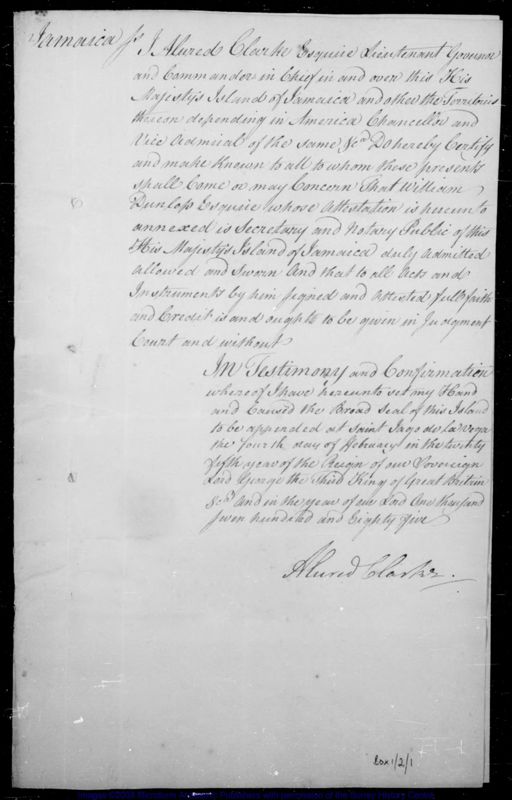 Jamaica ss. I Alured Clarke Esquire Lieutenant Governor
and Commander in Chief in and over this His
Majesty's Island of Jamaica and other the Territories
thereon depending in America Chancellor and
Vice Admiral of the same &ca Do hereby Certify
and make known to all to whom these presents
shall Come or may Concern That William
Dunlop Esquire whose Attestation is hereunto
annexed is Secretary and Notary Public of this
His Majesty's Island of Jamaica duly Admitted
allowed and Sworn And that to all Acts and
Instruments by him signed and Attested full faith
and Credit is and ought to be given in Judgment
Court and without
In Testimony and Confirmation
whereof I have hereunto set my Hand
and Caused the Broad Seal of this Island
to be appended at Saint Jago de la Vega
the fourth day of February in the twenty
fifth year of the Reign of our Sovereign
Lord George the third King of Great Britain
&ca And in the year of our Lord One thousand
seven hundred and Eighty five
Alured Clarke.
Box 1/2/1